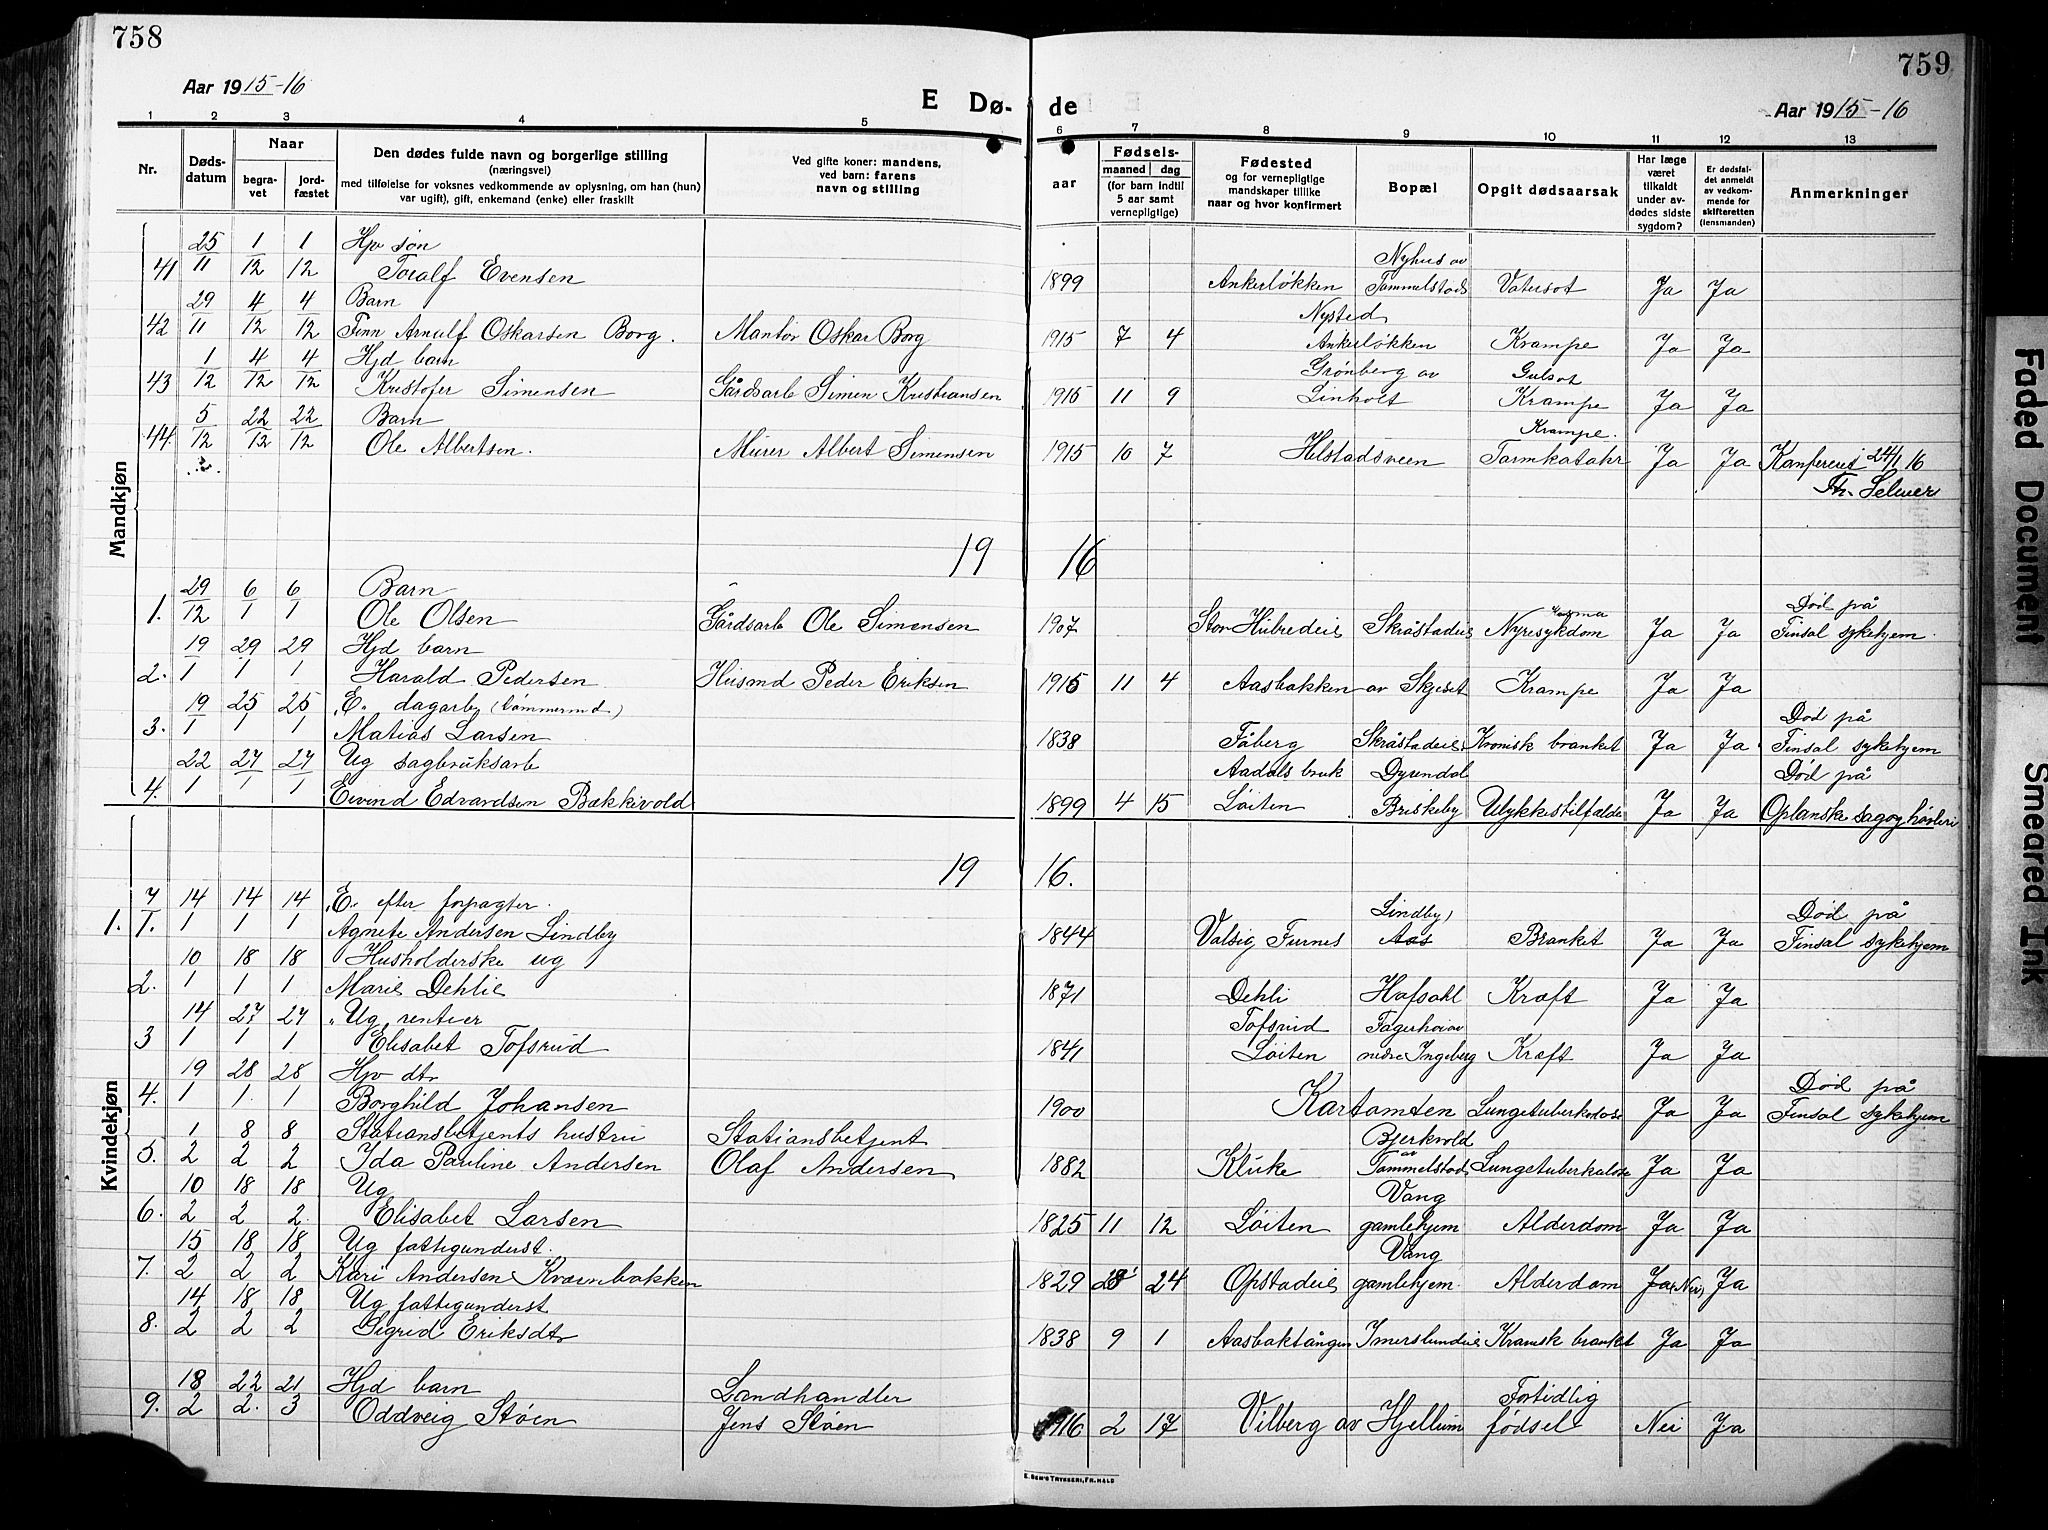 758
759
Aar 1915-16
E Dø-
de
Aar 1915-16
1 2 3 4 5 6 7 8 9 10 11 12 13
Nr.
Dødsdatum
Naar
begravet
jordfæstet
Den dødes fulde navn og borgerlige stilling
(næringsvei)
med tilføielse for voksnes vedkommende av oplysning, om han (hun)
var ugift), gift, enkemand (enke) eller fraskilt
Ved gifte koner: mandens,
ved barn: farens
navn og stilling
aar
Fødsels-
maaned dag
(for barn indtil
5 aar samt
vernepligtige)
Fødested
og for vernepligtige
mandskaper tillike
naar og hvor konfirmert
Bopæl
Opgit dødsaarsak
Har læge
været
tilkaldt
under av-
dødes sidste
sygdom?
Er dødsfal-
det anmeldt
av vedkom-
mende for
skifteretten
(lensmanden)
Anmerkninger
Mandkjøn
25 1 1 Hjv søn Nyhus av
41 11 12 12 Toralf Evensen 1899 Ankerløkken Tommelstads Vatersot Ja Ja
29 4 4 Barn Nysted
42 11 12 12 Finn Arnulf Oskarsen Borg. Mantør Oskar Borg 1915 7 4 Ankerløkken Krampe Ja Ja
1 4 4 Hjd barn Grønberg av Gulsot
43 12 12 12 Kristofer Simensen Gårdsarb Simen Kristiansen 1915 11 9 Linholt Krampe Ja Ja
5 22 22 Barn Krampe.
44. 12 12 12 Ole Albertsen. Murer Albert Simensen 1915 10 7 Helstadsveen Tarmkatahr Ja Ja Konfereret 24/1 16
Th. Selmer
19 16
29 6 6 Barn Død på
1. 12 1 1 Ole Olsen Gårdsarb Ole Simensen 1907 Stor Hubredeie Skråstadeie Nyresykdom Ja Ja Finsal sykehjem.
19 29 29 Hjd barn
2. 1 1 1 Harald Pedersen Husmd Peder Eriksen 1915 11 4 Aasbakken av Skjeset Krampe Ja Ja
19 25 25 "E" dagarb (tømmermd.) Død på
3. 1 1 1 Matias Larsen 1838 Fåberg Skråstadeie Kronisk bronket Ja Ja Finsal sykehjem
22 27 27 Ug sagbruksarb Aadals bruk Dyrendal Død på
4. 1 1 1 Eivind Edvardsen Bækkivold 1899 4 15 Løiten Briskeby Ulykkestilfælde Ja Ja Oplanske sagog høvleri
Kvindekjøn
19 16.
14 14 14 "E" efter forpagter. Lindby Død på
1. 1. 1 1 1 Agnete Andersen Lindby 1844 Valsig Furnes Aas Bronket Ja Ja Finsal sykehjem
10 18 18 Husholderske ug
2. 1 1 1 Marie Dehlie 1871 Dehli Hafsahl Kræft Ja Ja
14 27 27 "Ug" rentier Tofsrud Fagerhoiav
3 1 1 1 Elisabet Tofsrud 1841 Løiten nedre Ingeberg Kræft Ja Ja
19 28 28 Hjv dtr Død på
4. 1 1 1 Borghild Johansen 1900 Kartomten Lungetuberkulose Ja Ja Finsal sykehjem
1 8 8 Stationsbetjents hustru Stationsbetjent Bjerkvold
5. 2 2 2 Ida Pauline Andersen Olaf Andersen 1882 Kluke av Tommelstad Lungetuberkulose Ja Ja
10 18 18 Ug Vang
6. 2 2 2. Elisabet Larsen 1825 11 12 Løiten gamlehjem Alderdom Ja Ja
15 18 18 Ug fattigunderst. Vang
7. 2 2 2 Kari Andersen Kværnbakken 1829 24 Opstadeie gamlehjem. Alderdom Ja (Nei) Ja
14 18 18 Ug fattigunderst
8. 2 2 2 Sigrid Eriksdtr 1838 9 1 Aasbaktången Imerslundeie Kronisk bronket Ja Ja
18 22 21 Hjd barn Landhandler Fortidlig
9. 2 2. 3 Oddveig Støen Jens Støen 1916 2 17 Vilberg av Hjellum fødsel Nei Ja
E. SEM'S TRYKKERI, FR.HALD
Faded Document
Smeared Ink